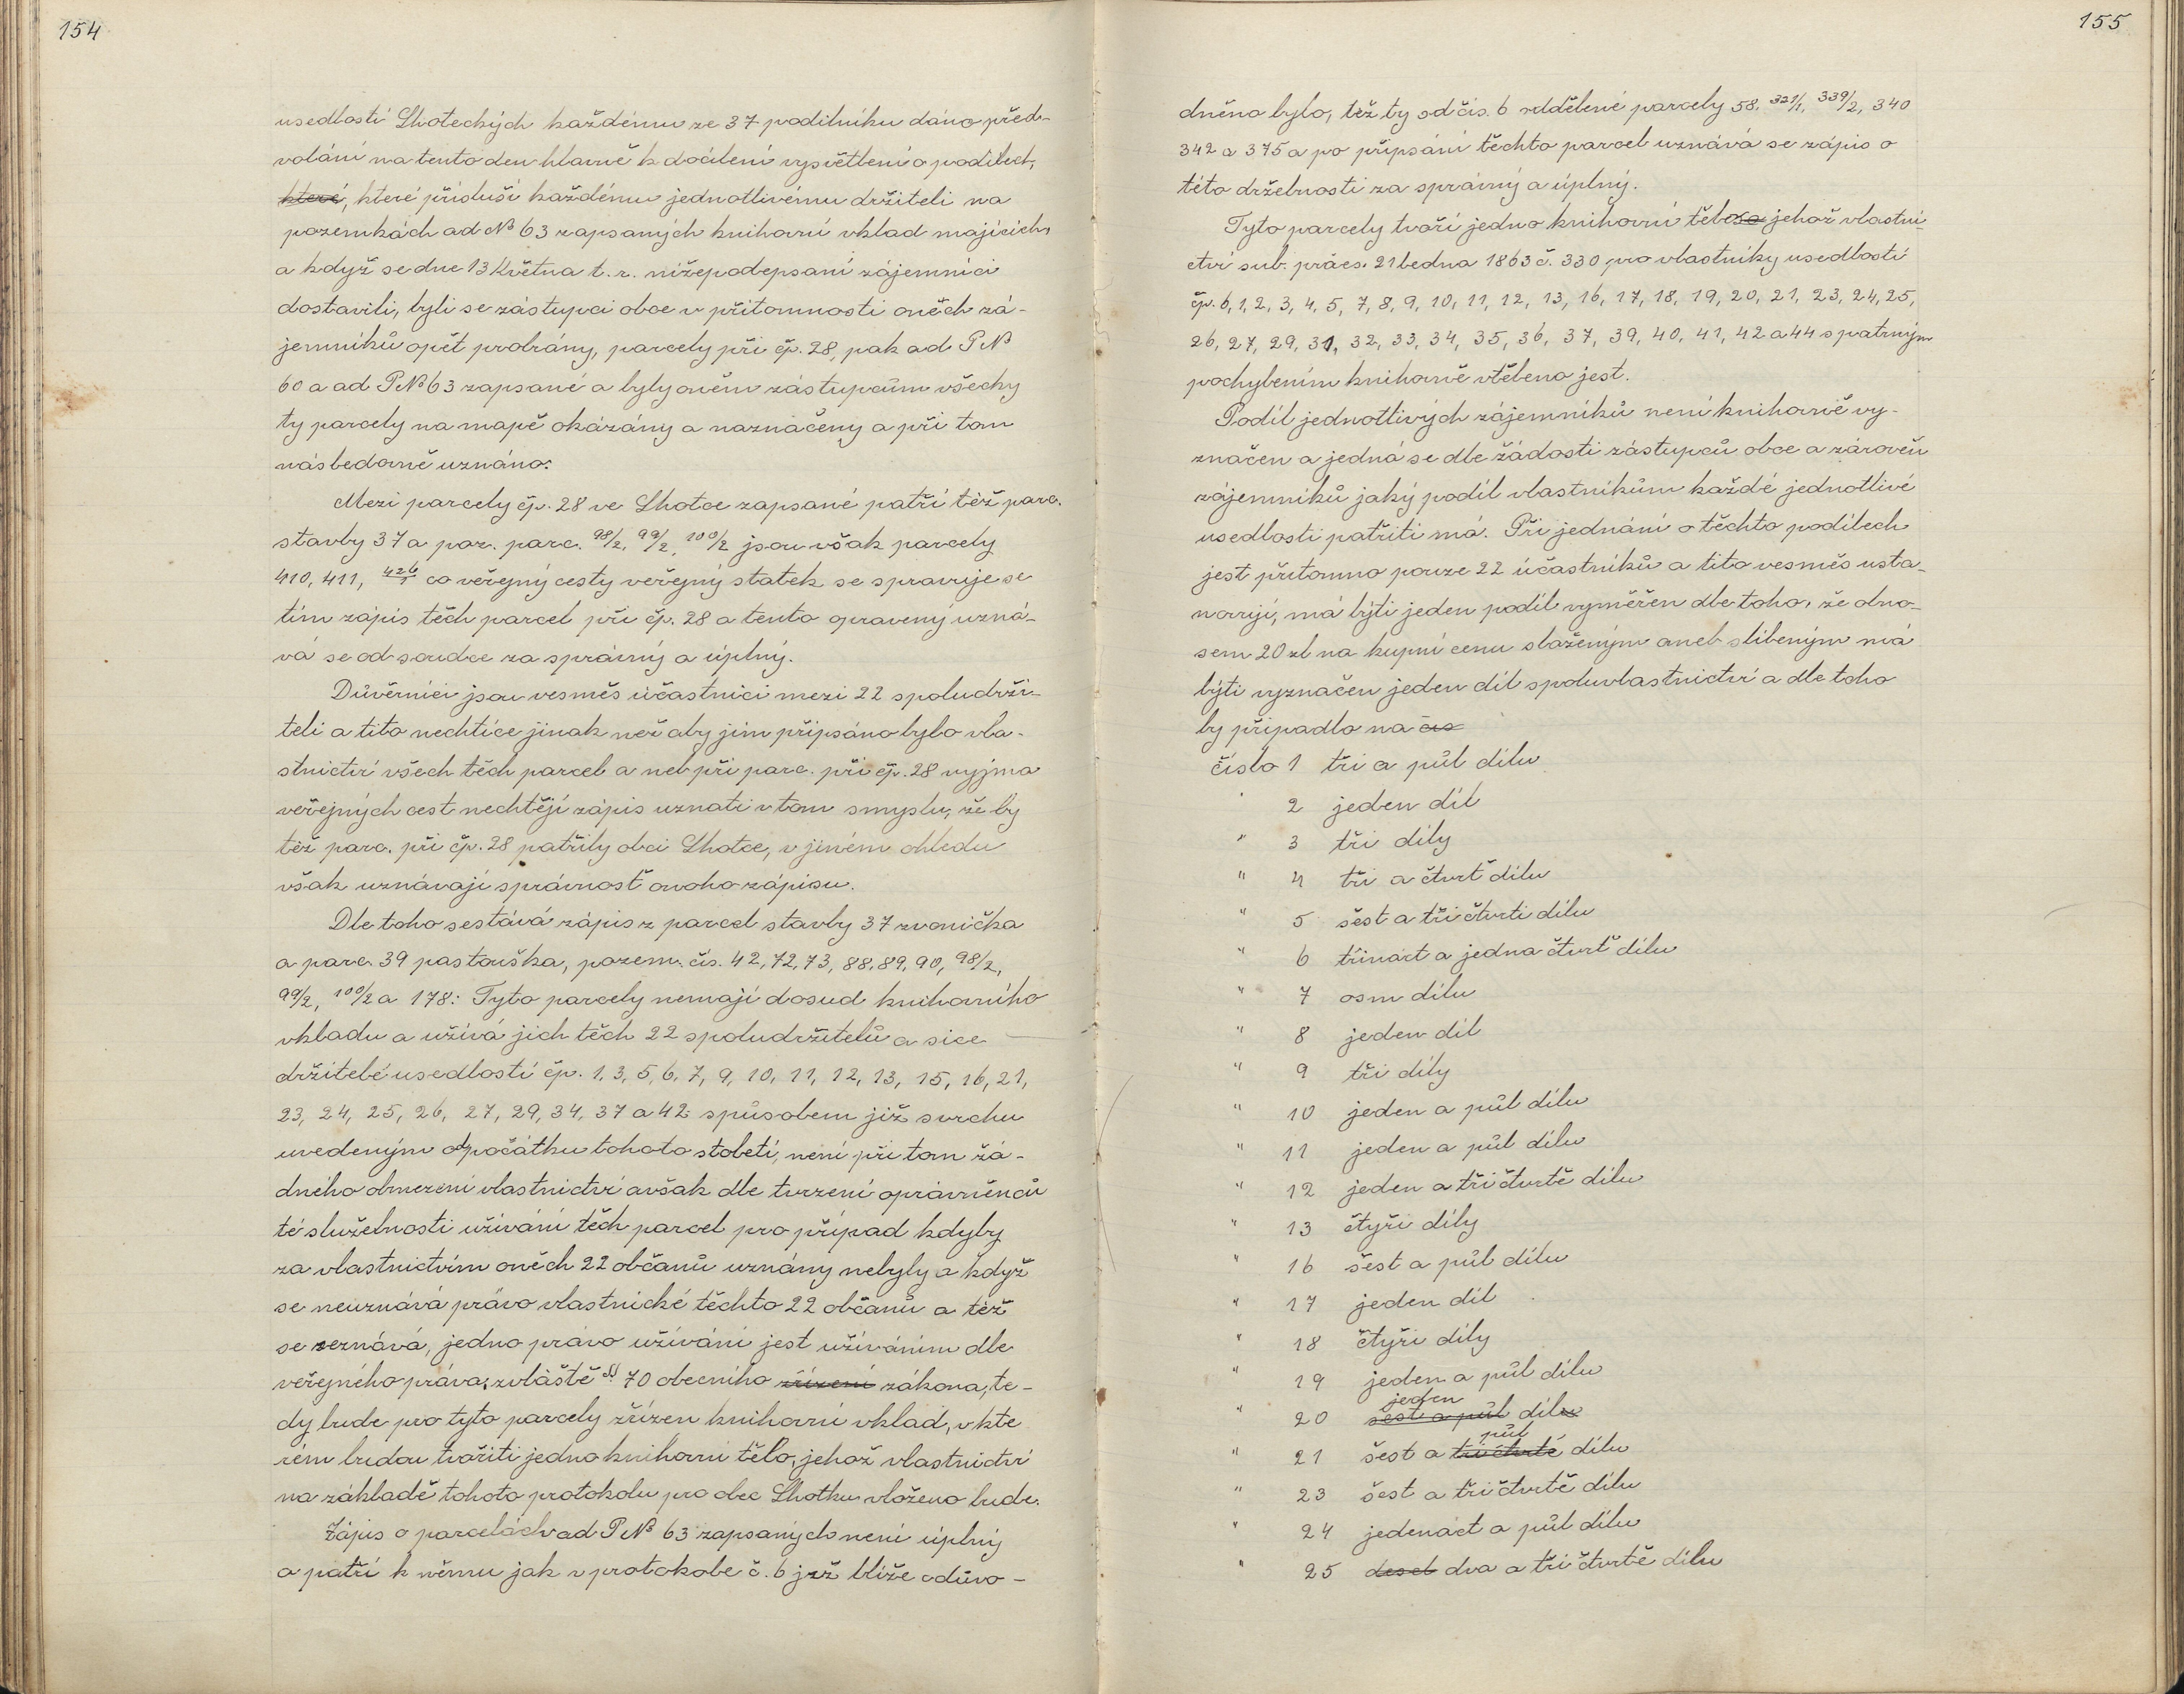 154
usedlostí Lhoteckých každému ze 37 podílníku dáno před-
volání na tento den hlavně k docílení vysvětlení o podílech,
které, které přísluší každému jednotlivému držiteli na
pozemkách ad No 63 zapsaných knihovní vklad majících,
a když se dne 13 Května t. r. nížepodepsaní zájemníci
dostavili, byli se zástupci obce v přítomnosti oněch zá-
jemníků opět probrány, parcely při čp. 28, pak ad P No
60 a ad P No 63 zapsané a byly oněm zástupcům všecky
ty parcely na mapě okázány a naznačeny a při tom
následovně uznáno:
Mezi parcely čp. 28 ve Lhotce zapsané patří též parc.
stavby 37 a poz. parc. 98/2, 99/2, 100/2 jsou však parcely
410, 411, 426/1 co veřejný cesty veřejný statek se spravuje se
tím zápis těch parcel při čp. 28 a tento opravený uzná-
vá se od soudce za správný a úplný.
Důvěrníci jsou vesměs účastníci mezi 22 spoludrži-
teli a tito nechtíce jinak než aby jim připsáno bylo vla-
stnictví všech těch parcel a neb při parc. při čp. 28 vyjma
veřejných cest nechtějí zápis uznati v tom smyslu, že by
též parc. při čp. 28 patřily obci Lhotce, v jiném ohledu
však uznávají správnosť onoho zápisu.
Dle toho sestává zápis z parcel stavby 37 zvonička
a parc. 39 pastouška, pozem. čís. 42, 72, 73, 88, 89, 90, 98/2,
99/2, 100/2 a 178: Tyto parcely nemají dosud knihovního
vkladu a užívá jich těch 22 spoludržitelů a sice
držitelé usedlostí čp. 1, 3, 5, 6, 7, 9, 10, 11, 12, 13, 15, 16, 21,
23, 24, 25, 26, 27, 29, 34, 37 a 42 spůsobem již svrchu
uvedeným od počátku tohoto století, není při tom žá-
dného obmezení vlastnictví avšak dle tvrzení oprávněnců
té služebnosti užívání těch parcel pro případ kdyby
za vlastnictvím oněch 22 občanů uznány nebyly a když
se neuznává právo vlastnické těchto 22 občanů a též
se seznává, jedno právo užívání jest užíváním dle
veřejného práva, zvláště § 70 obecního zřízení zákona, te-
dy bude pro tyto parcely zřízen knihovní vklad, v kte
rém budou tvořiti jedno knihovní tělo, jehož vlastnictví
na základě tohoto protokolu pro obec Lhotku vloženo bude.
Zápis o parcelách ad P No 63 zapsaných není úplný
a patří k němu jak v protokole č. 6 již blíže odůvo-
155
dněno bylo, též ty od čís. 6 oddělené parcely 58, 321/1, 339/2, 340
342 a 375 a po připsání těchto parcel uznává se zápis o
této držebnosti za správný a úplný.
Tyto parcely tvoří jedno knihovní těleso jehož vlastni-
ctví sub. präes. 21 ledna 1863 č. 330 pro vlastníky usedlostí
čp. 6, 1, 2, 3, 4, 5, 7, 8, 9, 10, 11, 12, 13, 16, 17, 18, 19, 20, 21, 23, 24, 25,
26, 27, 29, 31, 32, 33, 34, 35, 36, 37, 39, 40, 41, 42 a 44 s patrným
pochybením knihovně vtěleno jest.
Podíl jednotlivých zájemníků není knihovně vy-
značen a jedná se dle žádosti zástupců obce a zároveň
zájemníků jaký podíl vlastníkům každé jednotlivé
usedlosti patřiti má. Při jednání o těchto podílech
jest přítomno pouze 22 účastníků a tito vesměs usta-
novují, má býti jeden podíl vyměřen dle toho, že obno-
sem 20 zl na kupní cenu složeným aneb slíbeným má
býti vyznačen jeden díl spoluvlastnictví a dle toho
by připadlo na čís
číslo 1 tři a půl dílu
" 2 jeden díl
" 3 tři díly
" 4 tři a čtvrť dílu
" 5 šest a tři čtvrti dílu
" 6 třináct a jedna čtvrť dílu
" 7 osm dílu
" 8 jeden díl
" 9 tři díly
" 10 jeden a půl dílu
" 11 jeden a půl dílu
" 12 jeden a tři čtvrtě dílu
" 13 čtyři díly
" 16 šest a půl dílu
" 17 jeden díl
" 18 čtyři díly
" 19 jeden a půl dílu
jeden
" 20 šest a půl dílu
půl
" 21 šest a tři čtvrtě dílu
" 23 šest a tři čtvrtě dílu
" 24 jedenáct a půl dílu
" 25 deset dva a tři čtvrtě dílu